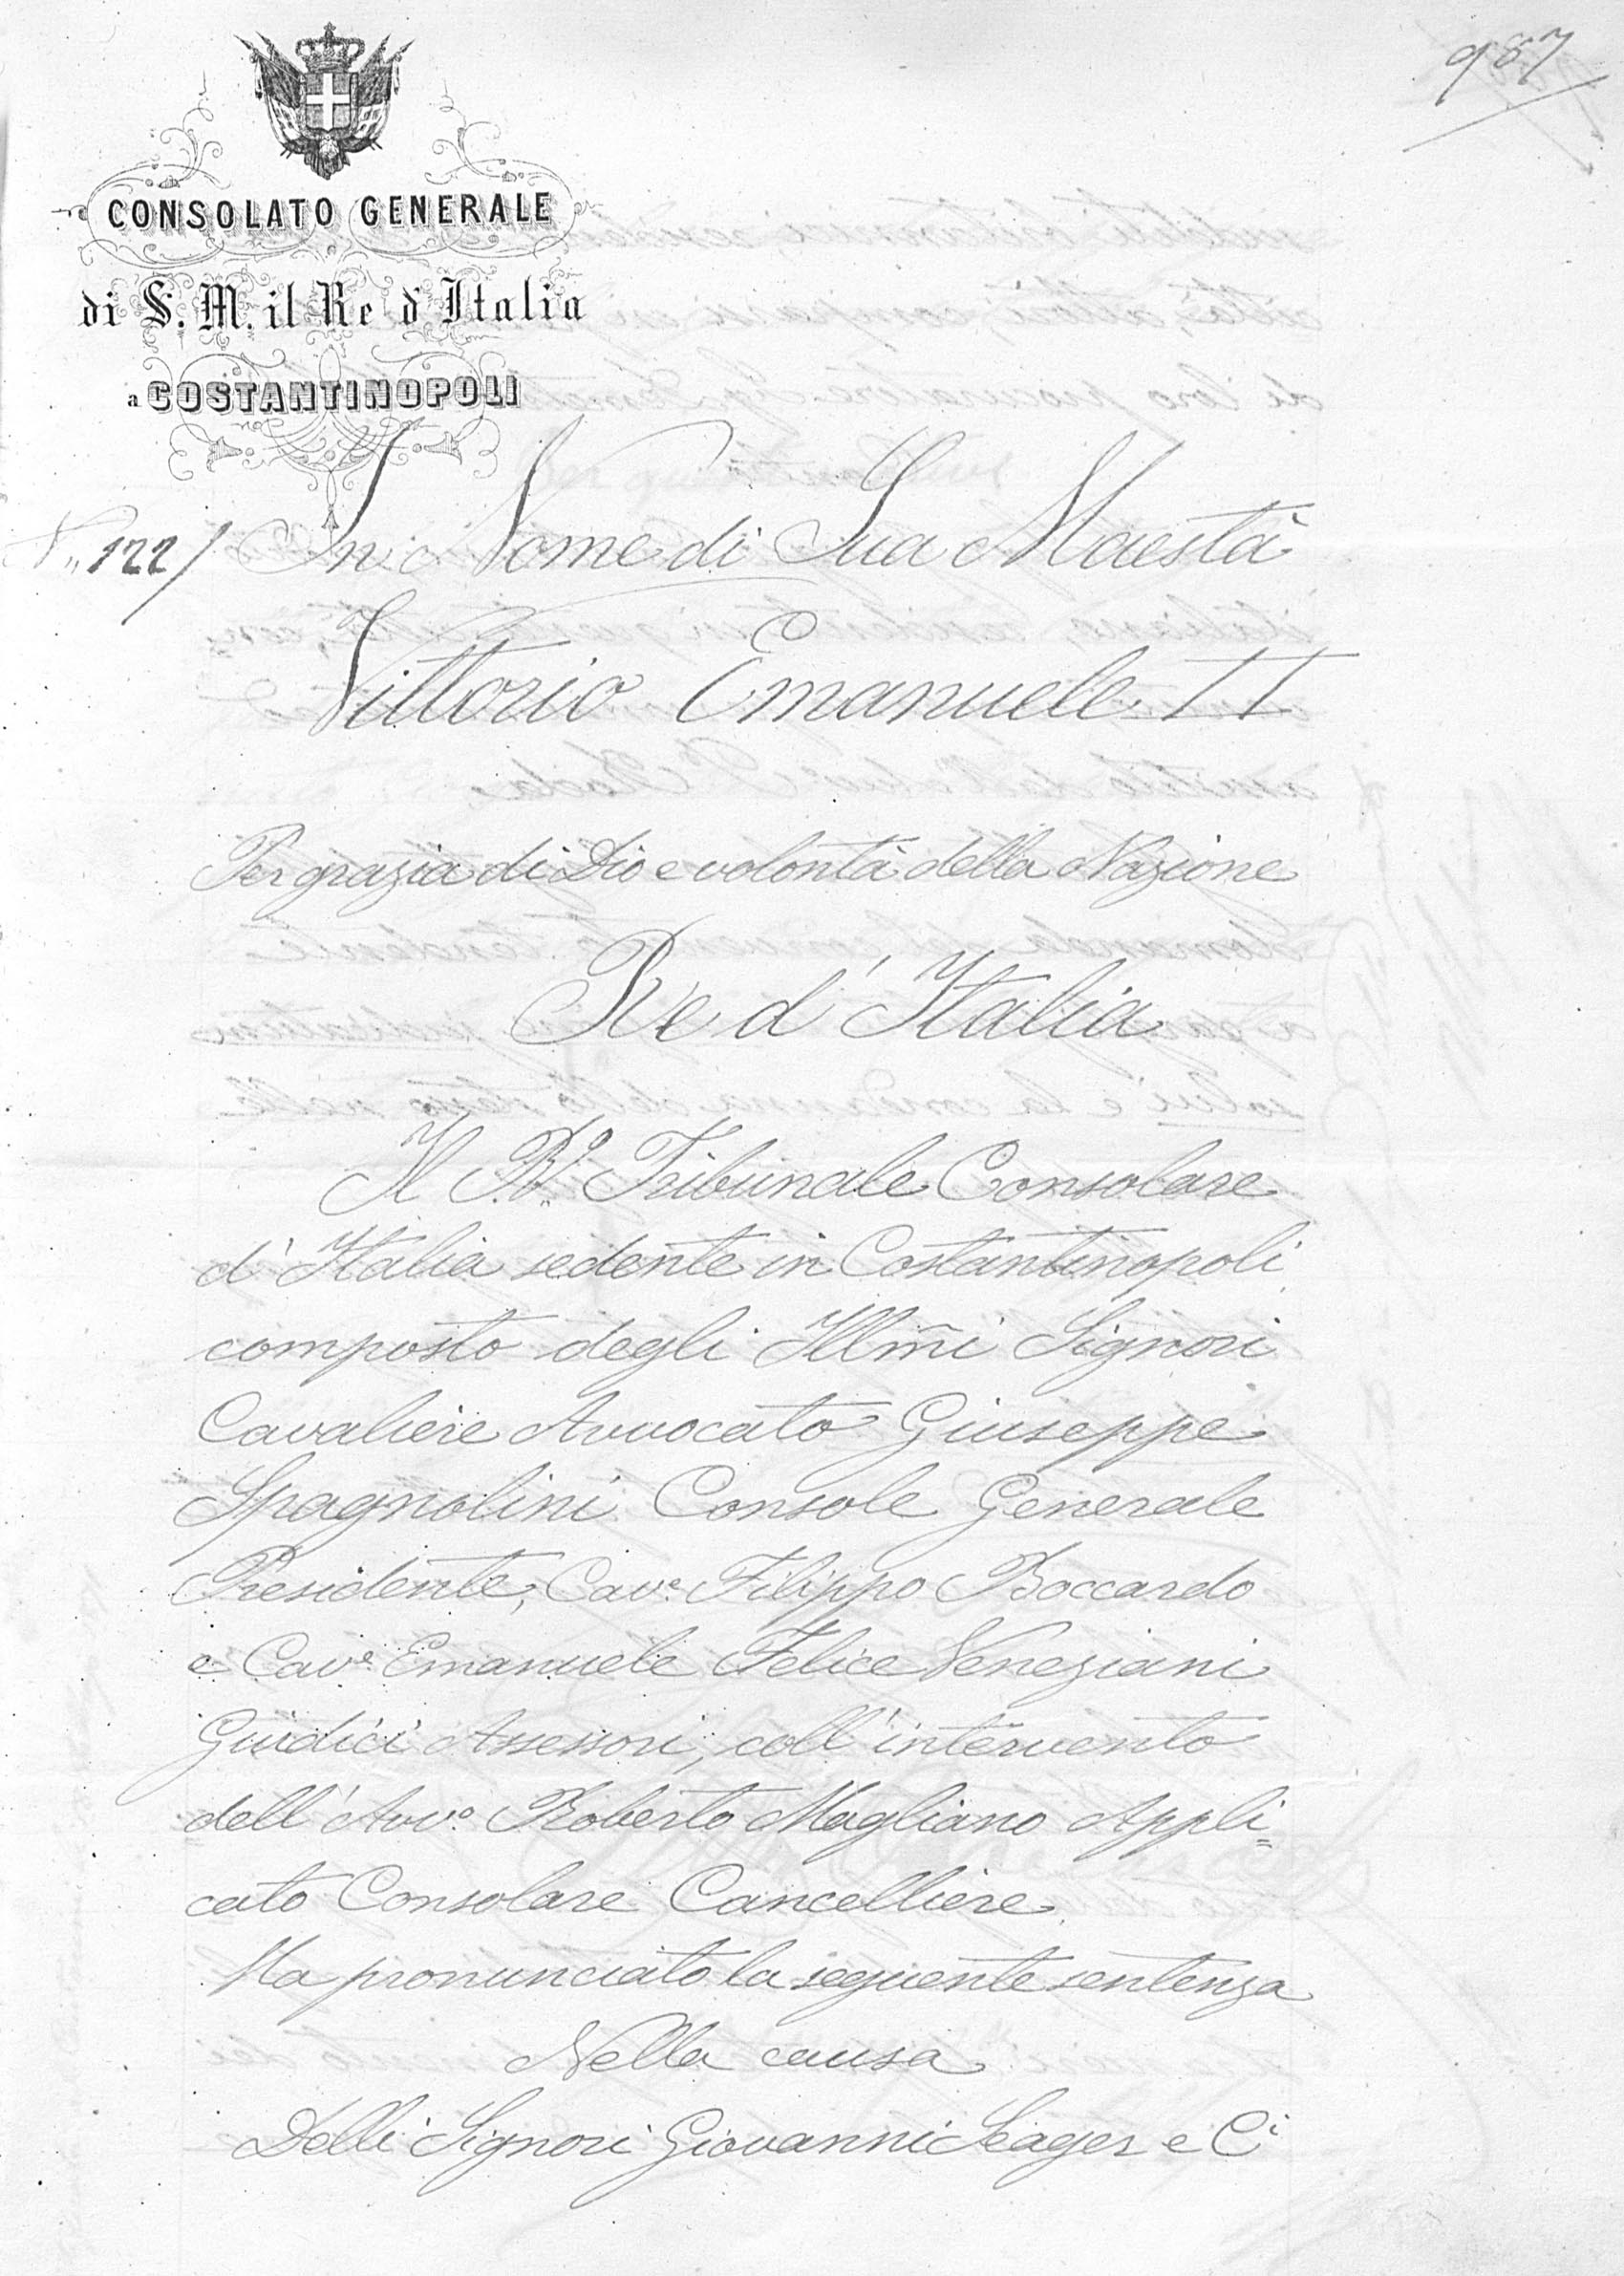 987
CONSOLATO GENERALE
di S. M. il Re d'Italia
a COSTANTINOPOLI
N.º 122 / In Nome di Sua Maestà
Vittorio Emanuele II
Per grazia di Dio e volontà della Nazione
Re d'Italia
Il R.º Tribunale Consolare
d'Italia sedente in Costantinopoli
composto degli Illm̃i Signori
Cavaliere Avvocato Giuseppe
Spagnolini Console Generale
Presidente, Cav.e Filippo Boccardo
e Cav.e Emanuele Felice Veneziani
Giudici Assessori, coll'intervento
dell'Avv.º Roberto Magliano Appli=
cato Consolare Cancelliere
Ha pronunciato la seguente sentenza
Nella causa
Delli Signori Giovanni Seager e C.i